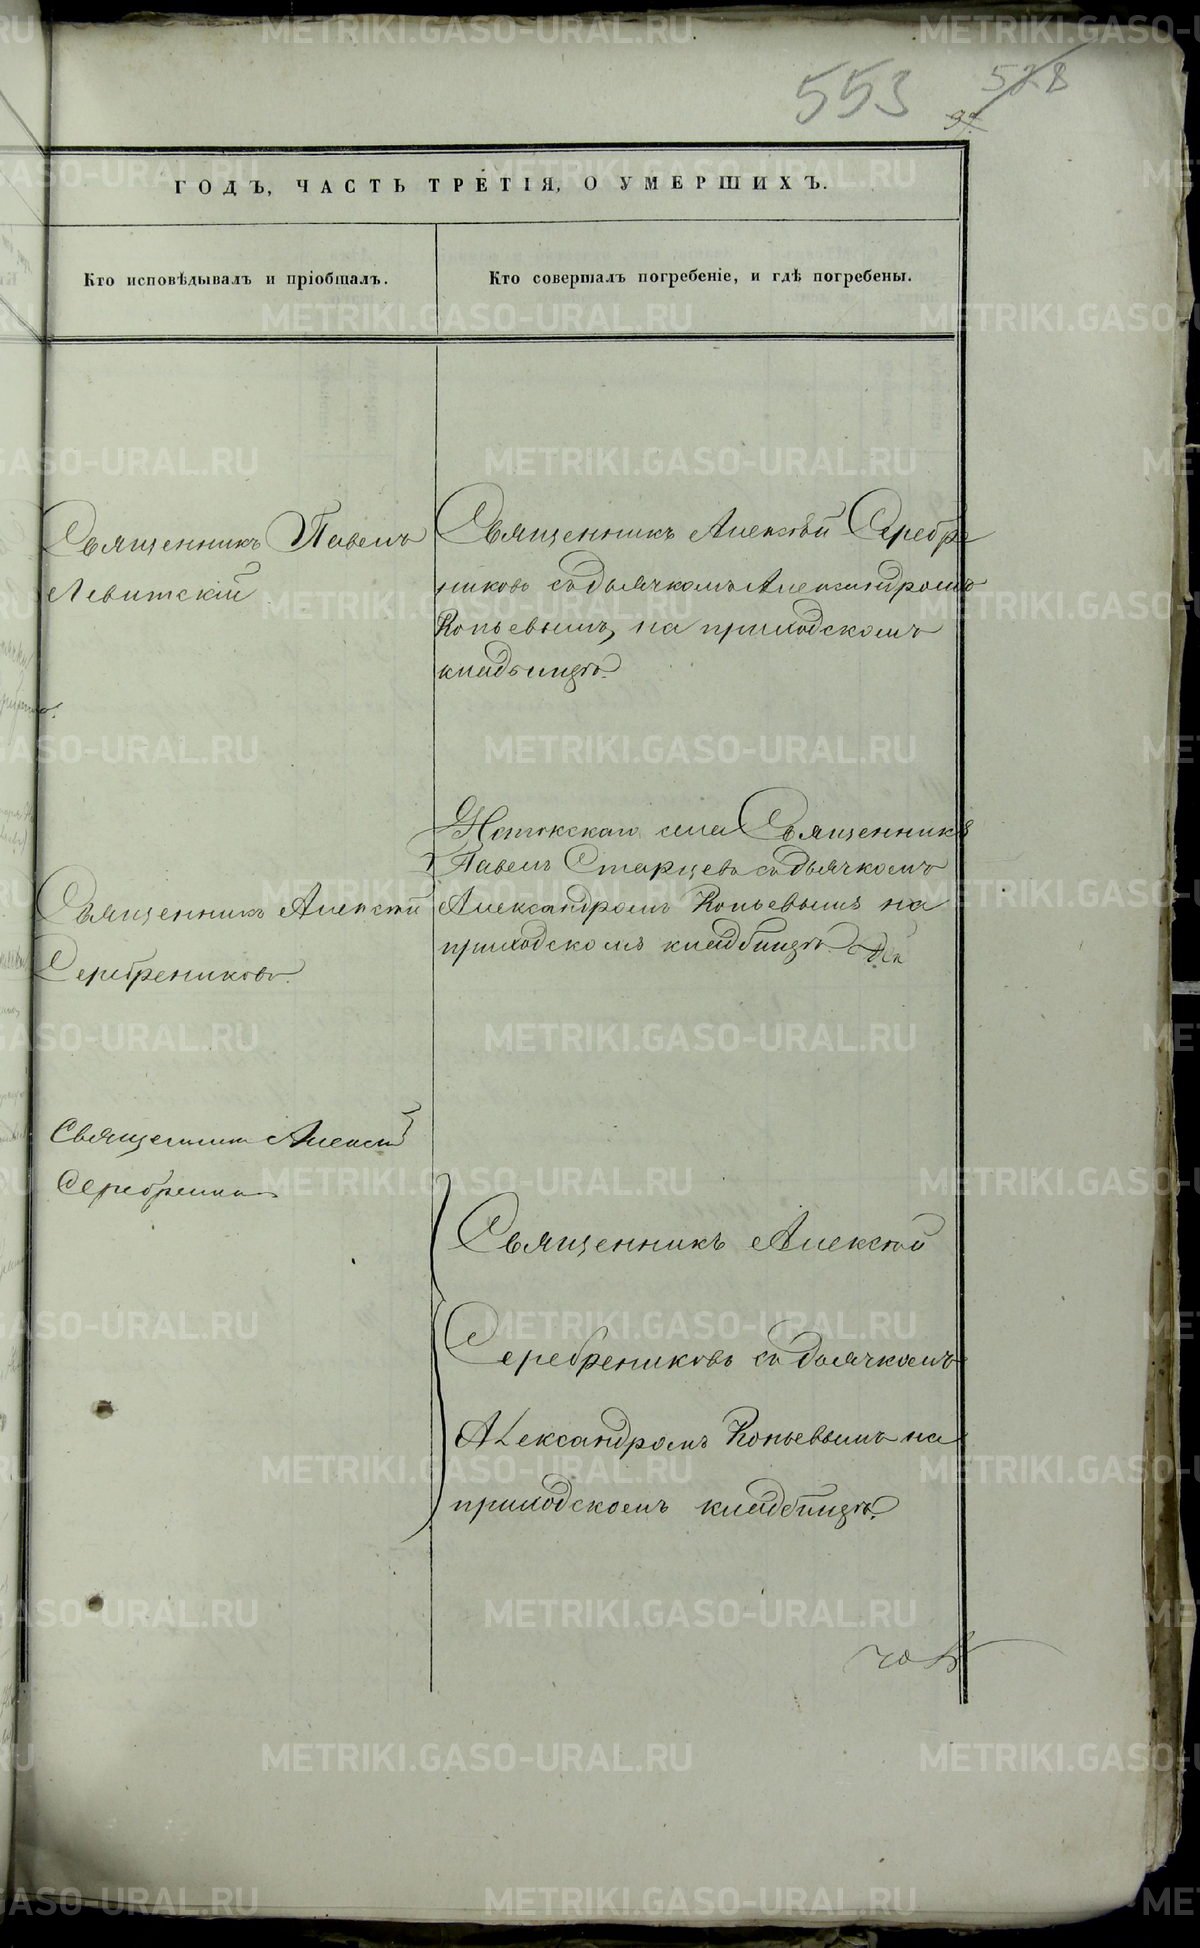 553
528
ГОДЪ, ЧАСТЬ ТРЕТІЯ, О УМЕРШИХЪ.
Кто исповѣдывалъ и пріобщалъ.
Кто совершалъ погребеніе, и гдѣ погребены.
Священникъ Павелъ
Левитскій
Священникъ Алексѣй Серебре
никовъ съ дьячкомъ Александромъ
Копьевымъ, на приходскомъ
кладбищѣ.
села Священникъ
Павелъ Старцевъ съ дьячкомъ
Александромъ Копьевымъ на
приходскомъ кладбищѣ.
Священникъ Алексѣй
Серебрениковъ.
Священникъ Алексѣй
Серебрениковъ
Священникъ Алексѣй
Серебрениковъ съ дьячкомъ
Александромъ Копьевымъ на
приходскомъ кладбищѣ.
METRIKI.GASO-URAL.RU